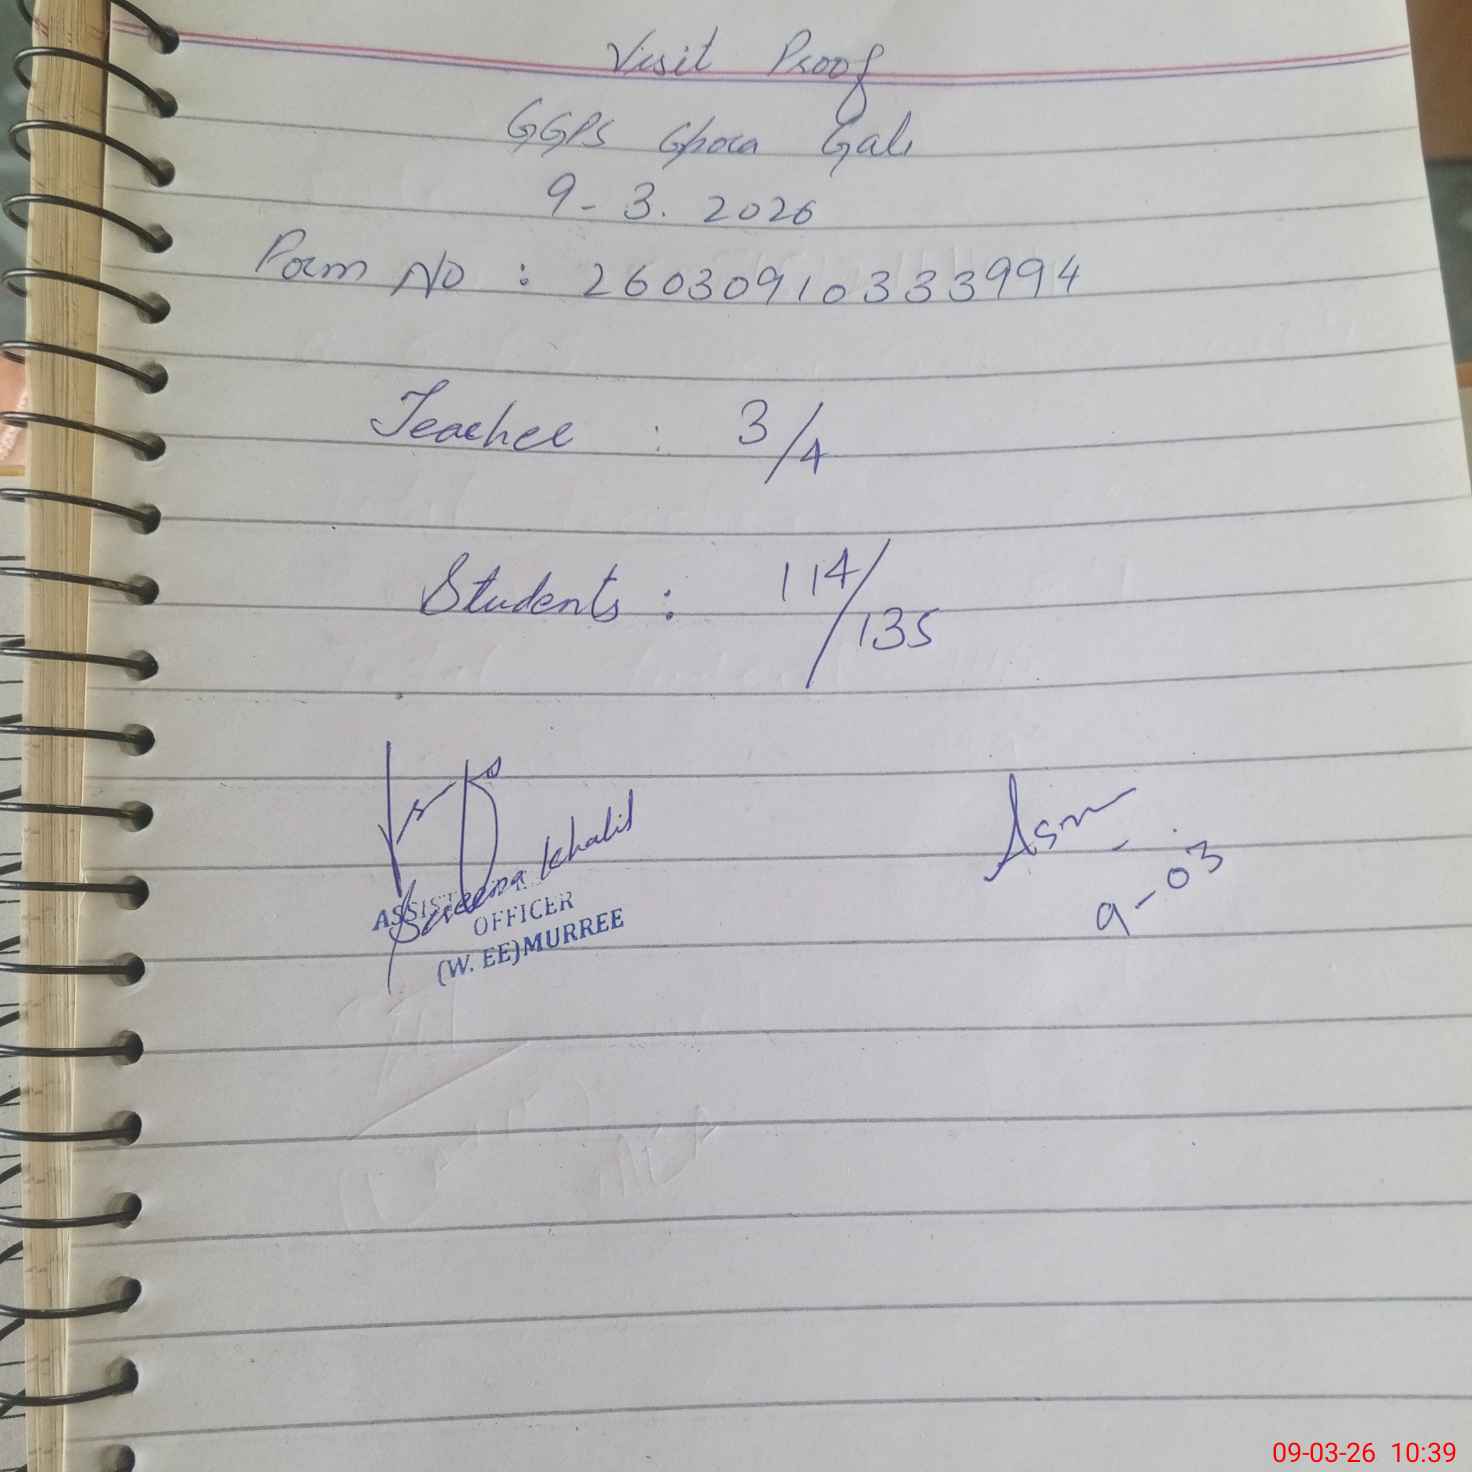 Visit Proof
GGPS Ghora Gali
9-3.2026
Form No : 26030910333994
Teacher : 3/4
Students : 114/135
Khalil
ASSIST
OFFICER
(W. EE)MURREE
Asm
9-03
09-03-26 10:39